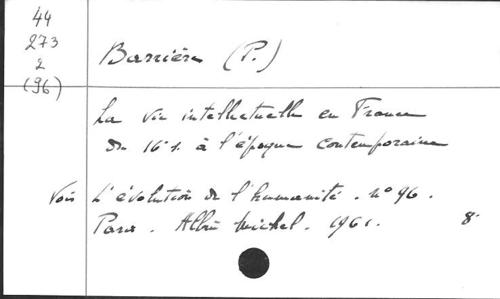 44
273
2
(96)
Barrière (P.)
La vie intellectuelle en France
du 16e s. à l'époque contemporaine
Voir L'évolution de l'humanité. n° 96.
Paris. Albin Michel. 1961. 8°